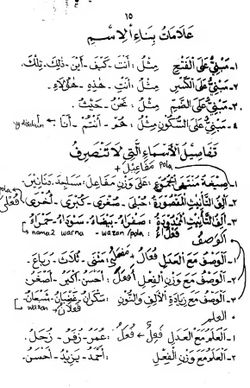 ١٥
عَلَامَتُ بِنَاءِ الْاِسْمِ
١- مَبْنِيٌّ عَلَى الْفَتْحِ مِثْلُ : أَنْتَ - كَيْفَ - أَيْنَ - ذٰلِكَ - تِلْكَ.
٢- مَبْنِيٌّ عَلَى الْكَسْرِ مِثْلُ : أَنْتِ - هٰذِهِ - هٰؤُلَاءِ.
٣- مَبْنِيٌّ عَلَى الضَّمِّ مِثْلُ : نَحْنُ - حَيْثُ.
٤- مَبْنِيٌّ عَلَى السُّكُوْنِ مِثْلُ : هُمْ - أَنْتُمْ - أَنَا
تَفَاصِيْلُ الْأَسْمَاءِ الَّتِي لَا تَنْصَرِفُ
مَفَاعِيْلَ pola
١- صِيْغَةُ مُنْتَهَى الْجُمُوْعِ : عَلَى وَزْنِ مَفَاعِلَ
٢- أَلِفُ التَّأْنِيْثِ الْمَقْصُوْرَةُ : - صُغْرَى - كُبْرَى -
٣- أَلِفُ التَّأْنِيْثِ الْمَمْدُوْدَةُ : صَفْرَاءُ - بَيْضَاءُ - سَوْدَاءُ - حَمْرَاءُ
nama2 warna - wazan/pola
الْوَصْفُ
١- الْوَصْفُ مَعَ الْعَدْلِ فُعَالُ - مَفْعَلُ : مَثْنَى - ثُلَاثَ - رُبَاعَ.
٢- الْوَصْفُ مَعَ وَزْنِ الْفِعْلِ : أَحْسَنُ - أَكْبَرُ - أَصْغَرُ
٣- الْوَصْفُ مَعَ زِيَادَةِ الْأَلِفِ وَالنُّوْنِ : سَكْرَانُ - غَضْبَانُ - شَبْعَانُ
wazan فَعْلَانُ
العلم
١- الْعَلَمُ مَعَ الْعَدْلِ فُعَلُ : عُمَرُ - زُفَرُ - زُحَلُ.
٢- الْعَلَمُ مَعَ وَزْنِ الْفِعْلِ : أَحْمَدُ - يَزِيْدُ - أَحْسَنُ.